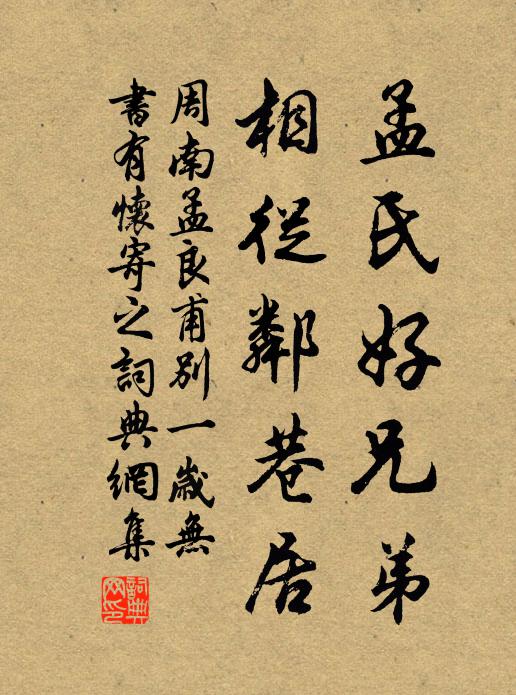 孟氏好兄弟
相從鄰巷居
周南孟良甫别一歲無
書有懷寄之詞典網集
詞典网印